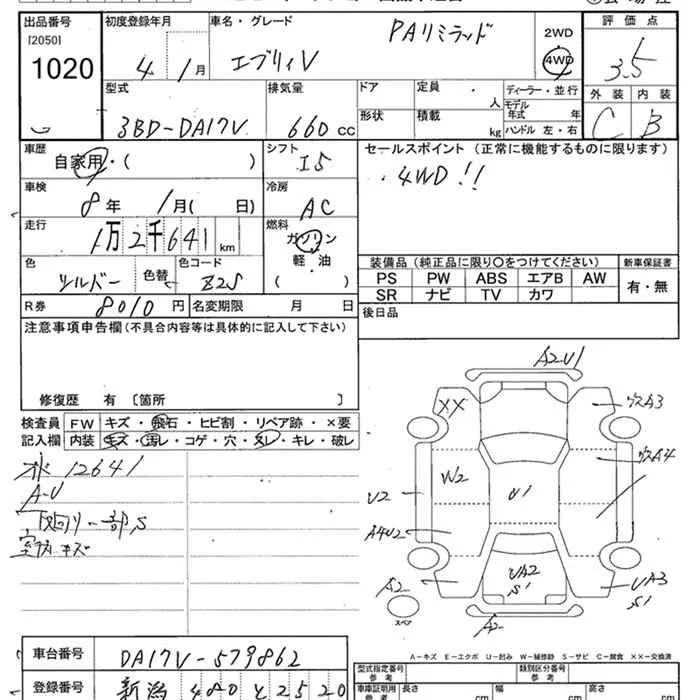 出品番号 初度登録年月 車名・グレード PAリミテッド 2WD 評価点
[2050] 4WD
1020 4年 1月 エブリィV 3.5
型式 排気量 ドア 定員 人 ディーラー・並行 外装 内装
3BD-DA17V 660cc 形状 積載 kg モデル年式 年式 C B
ハンドル 左・右
車歴 自家用・( ) シフト I5 セールスポイント (正常に機能するものに限ります)
・4WD!!
車検 8年 1月( 日) 冷房 AC
走行 1万2千641km 燃料 ガソリン・軽油 ( )
色 シルバー 色替 色コード Z2S 装備品 (純正品に限り○をつけてください) 新車保証書
PS PW ABS エアB AW 有・無
SR ナビ TV カワ
R券 8010円 名変期限 月 日 後日品
注意事項申告欄 (不具合内容等は具体的に記入して下さい)
修復歴 有 [箇所 ]
検査員 FW キズ・飛石・ヒビ割・リペア跡・×要
記入欄 内装 キズ・汚レ・コゲ・穴・スレ・キレ・破レ
12641
A-U
下回り一部S
室内キズ
A2U1
XX 穴A3
W2 穴A4
U2 U1
A4U2
UA2 S1 UA3 S1
A2 スペア A2
A-キズ E-エクボ U-凹み W-補修跡 S-サビ C-腐食 ××-交換済
車台番号 DA17V-579862
登録番号 新潟 480 と 2520
型式指定番号 参考 類別区分番号 参考
車庫証明用 参考 長さ cm 幅 cm 高さ cm